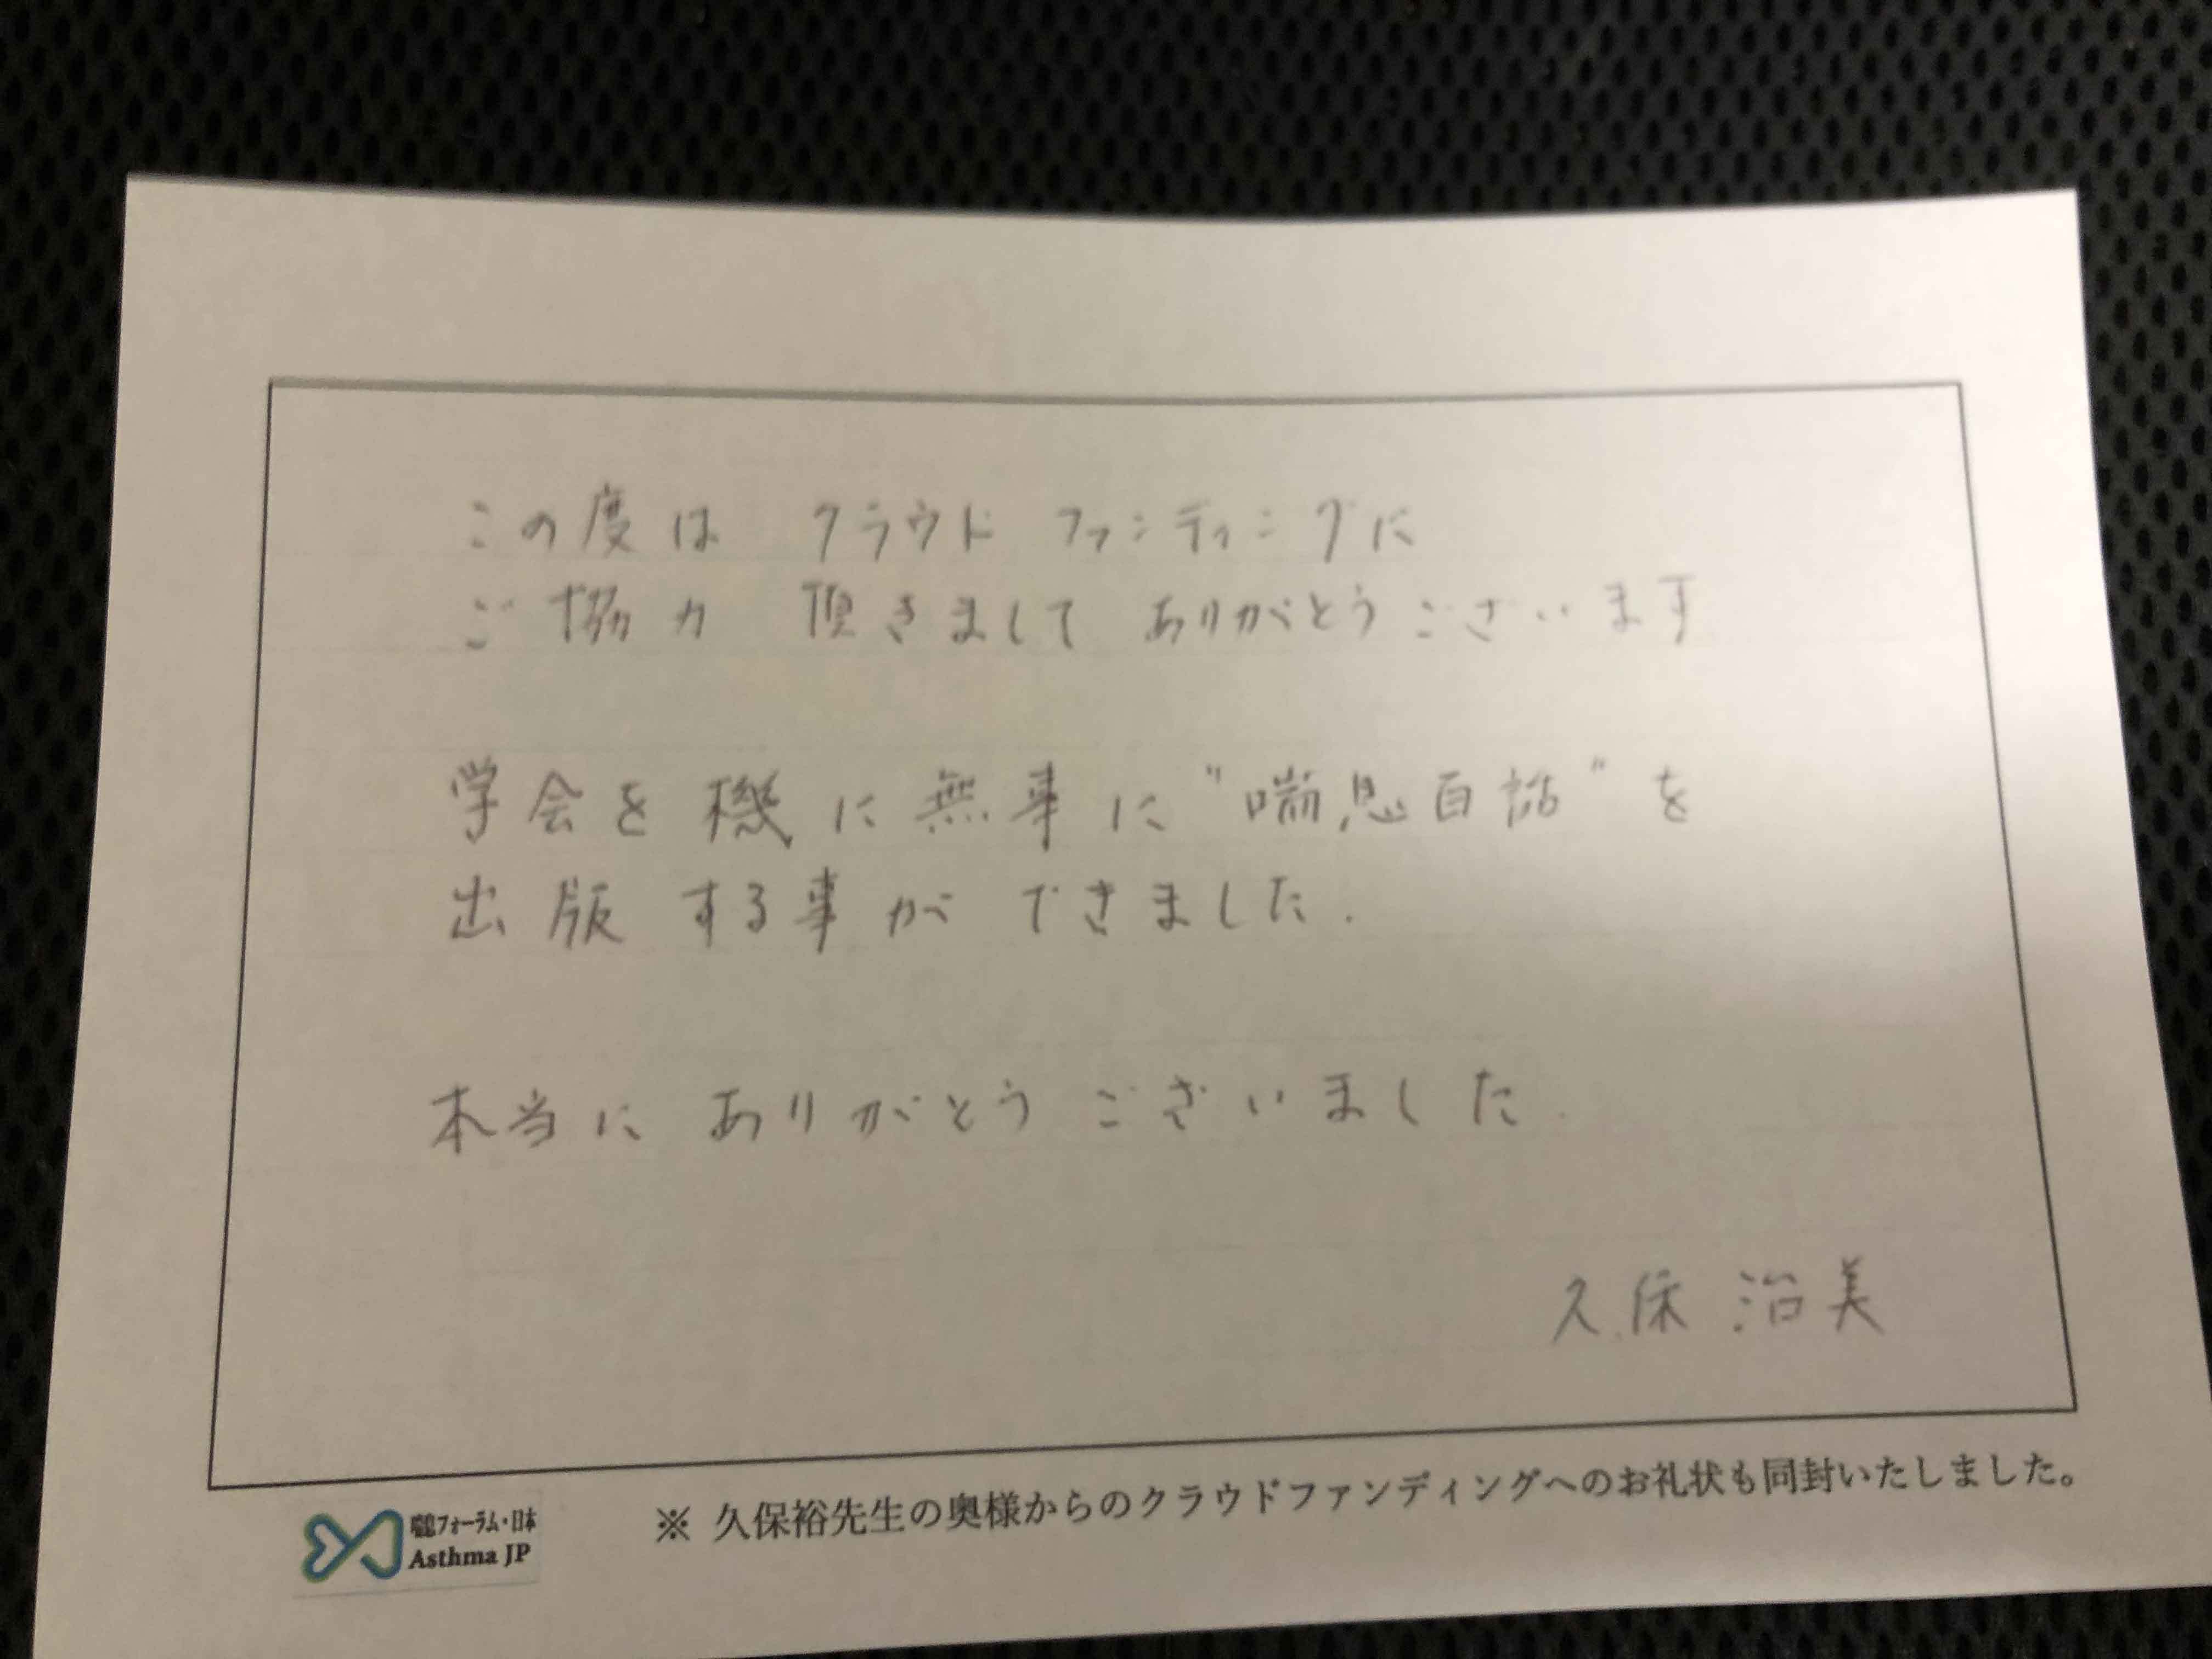 この度は クラウドファンディングに
ご協力 頂きまして ありがとうございます
学会を機に無事に"喘息百話"を
出版する事ができました.
本当に ありがとうございました.
久保 治美
喘息フォーラム・日本
Asthma JP
※ 久保裕先生の奥様からのクラウドファンディングへのお礼状も同封いたしました。